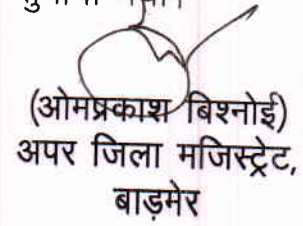 (ओमप्रकाश बिश्नोई)
अपर जिला मजिस्ट्रेट,
बाड़मेर